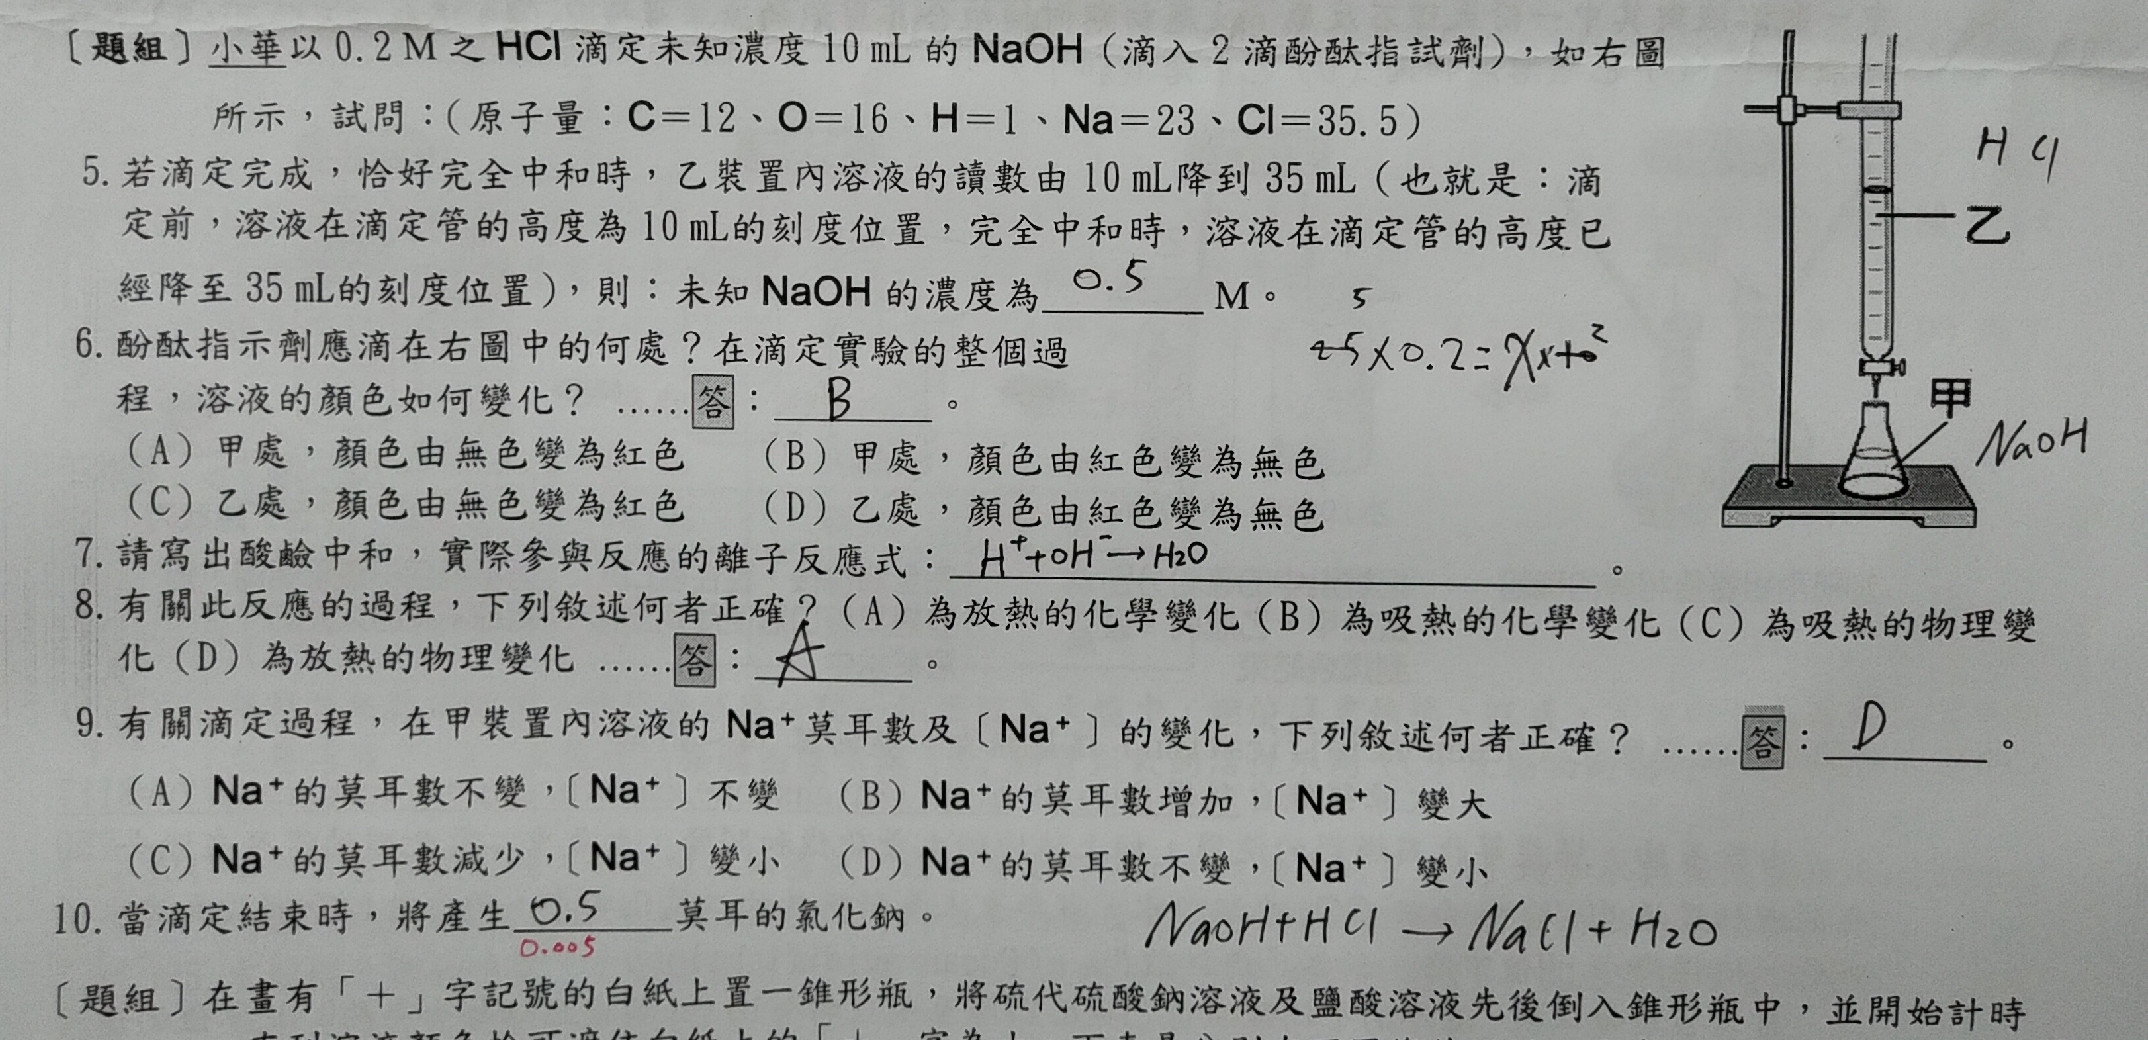 〔題組〕小華以 0.2 M 之 HCl 滴定未知濃度 10 mL 的 NaOH（滴入 2 滴酚酞指試劑），如右圖
所示，試問：（原子量：C＝12、O＝16、H＝1、Na＝23、Cl＝35.5）
5. 若滴定完成，恰好完全中和時，乙裝置內溶液的讀數由 10 mL降到 35 mL（也就是：滴
定前，溶液在滴定管的高度為 10 mL的刻度位置，完全中和時，溶液在滴定管的高度已
經降至 35 mL的刻度位置），則：未知 NaOH 的濃度為 0.5 M。
HCl
乙
5
25×0.2=X×10 2
6. 酚酞指示劑應滴在右圖中的何處？在滴定實驗的整個過
程，溶液的顏色如何變化？ ……答： B 。
甲
NaOH
（A）甲處，顏色由無色變為紅色 （B）甲處，顏色由紅色變為無色
（C）乙處，顏色由無色變為紅色 （D）乙處，顏色由紅色變為無色
7. 請寫出酸鹼中和，實際參與反應的離子反應式： H⁺+OH⁻→H₂O 。
8. 有關此反應的過程，下列敘述何者正確？（A）為放熱的化學變化（B）為吸熱的化學變化（C）為吸熱的物理變
化（D）為放熱的物理變化 ……答： A 。
9. 有關滴定過程，在甲裝置內溶液的 Na⁺莫耳數及〔Na⁺〕的變化，下列敘述何者正確？ ……答： D 。
（A）Na⁺的莫耳數不變，〔Na⁺〕不變 （B）Na⁺的莫耳數增加，〔Na⁺〕變大
（C）Na⁺的莫耳數減少，〔Na⁺〕變小 （D）Na⁺的莫耳數不變，〔Na⁺〕變小
10. 當滴定結束時，將產生 0.5 莫耳的氯化鈉。
0.005
NaOH+HCl → NaCl + H₂O
〔題組〕在畫有「＋」字記號的白紙上置一錐形瓶，將硫代硫酸鈉溶液及鹽酸溶液先後倒入錐形瓶中，並開始計時